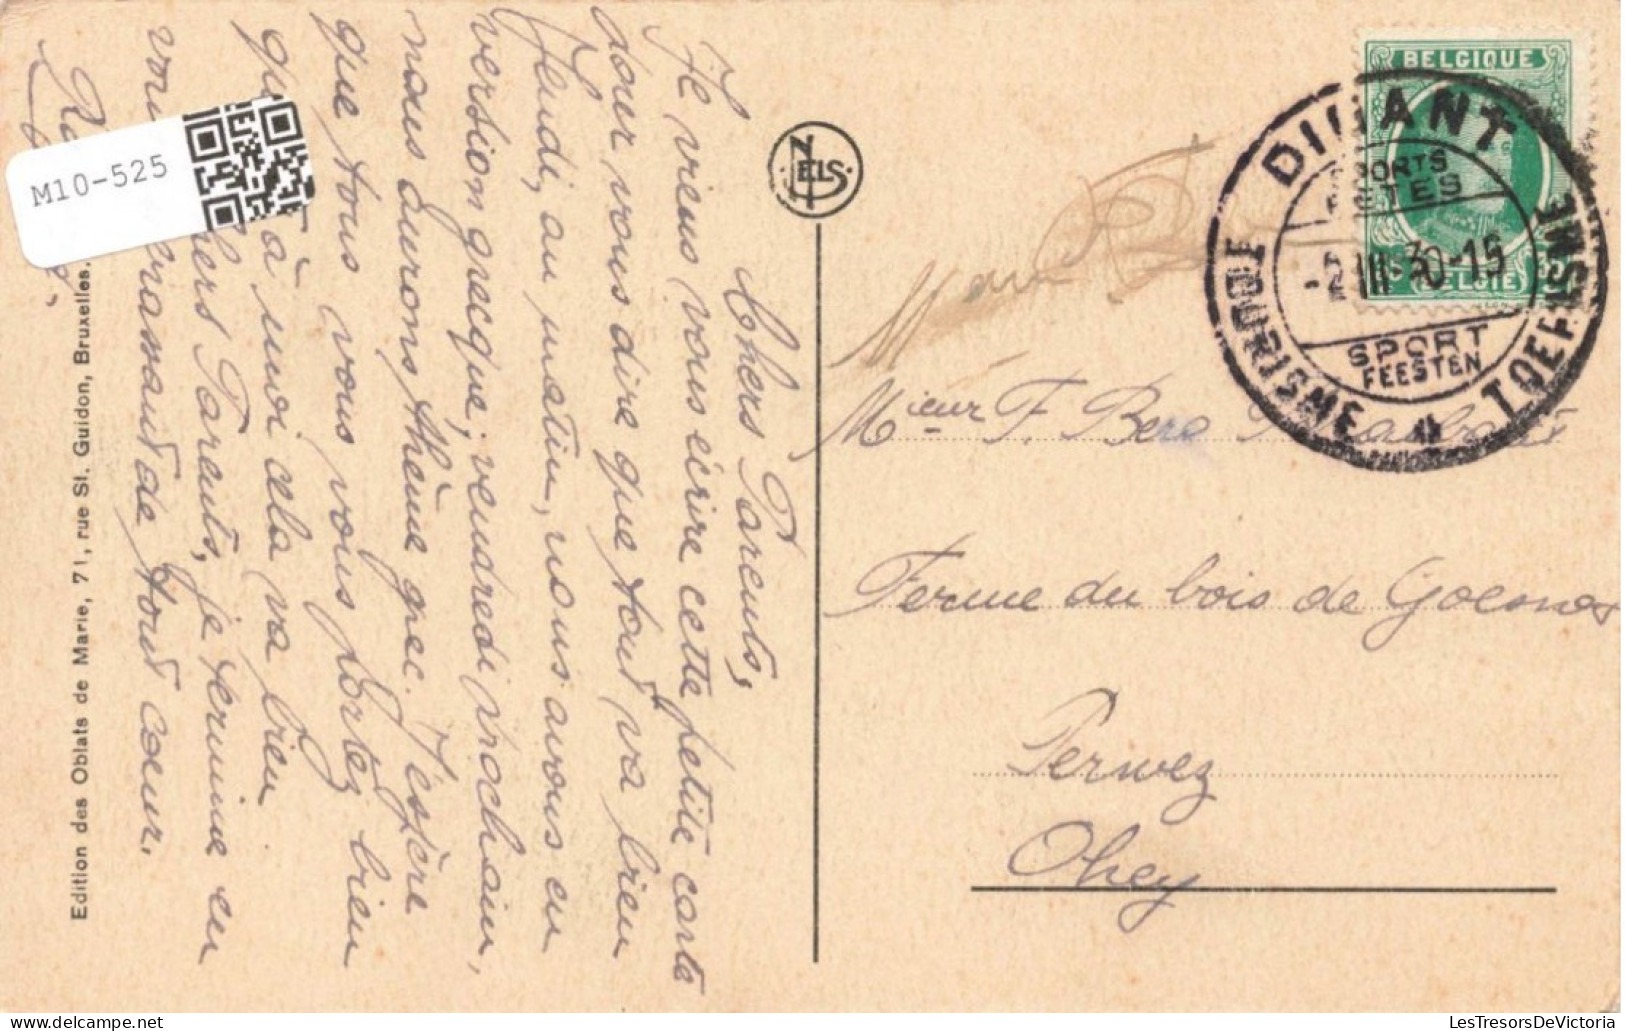 Chers Parents,
Je viens vous écrire cette petite carte
pour vous dire que tout va bien
Jeudi, au matin, nous avons eu
version grecque, vendredi prochain,
nous aurons thème grec. J'espère
que tous vous vous portez bien
à moi cela va bien
hers Parents, je termine en
brassant de tout coeur.
M10-525
Edition des Oblats de Marie, 71, rue St. Guidon, Bruxelles.
NELS.
BELGIQUE
BELGIË
DINANT
SPORTS
FETES
-2 III 30-15
SPORT
FEESTEN
TOURISME
TOERISME
Mieur F. Bero
Ferme du bois de Goesnes
Perwez
Ohey
LesTresorsDeVictoria
delcampe.net